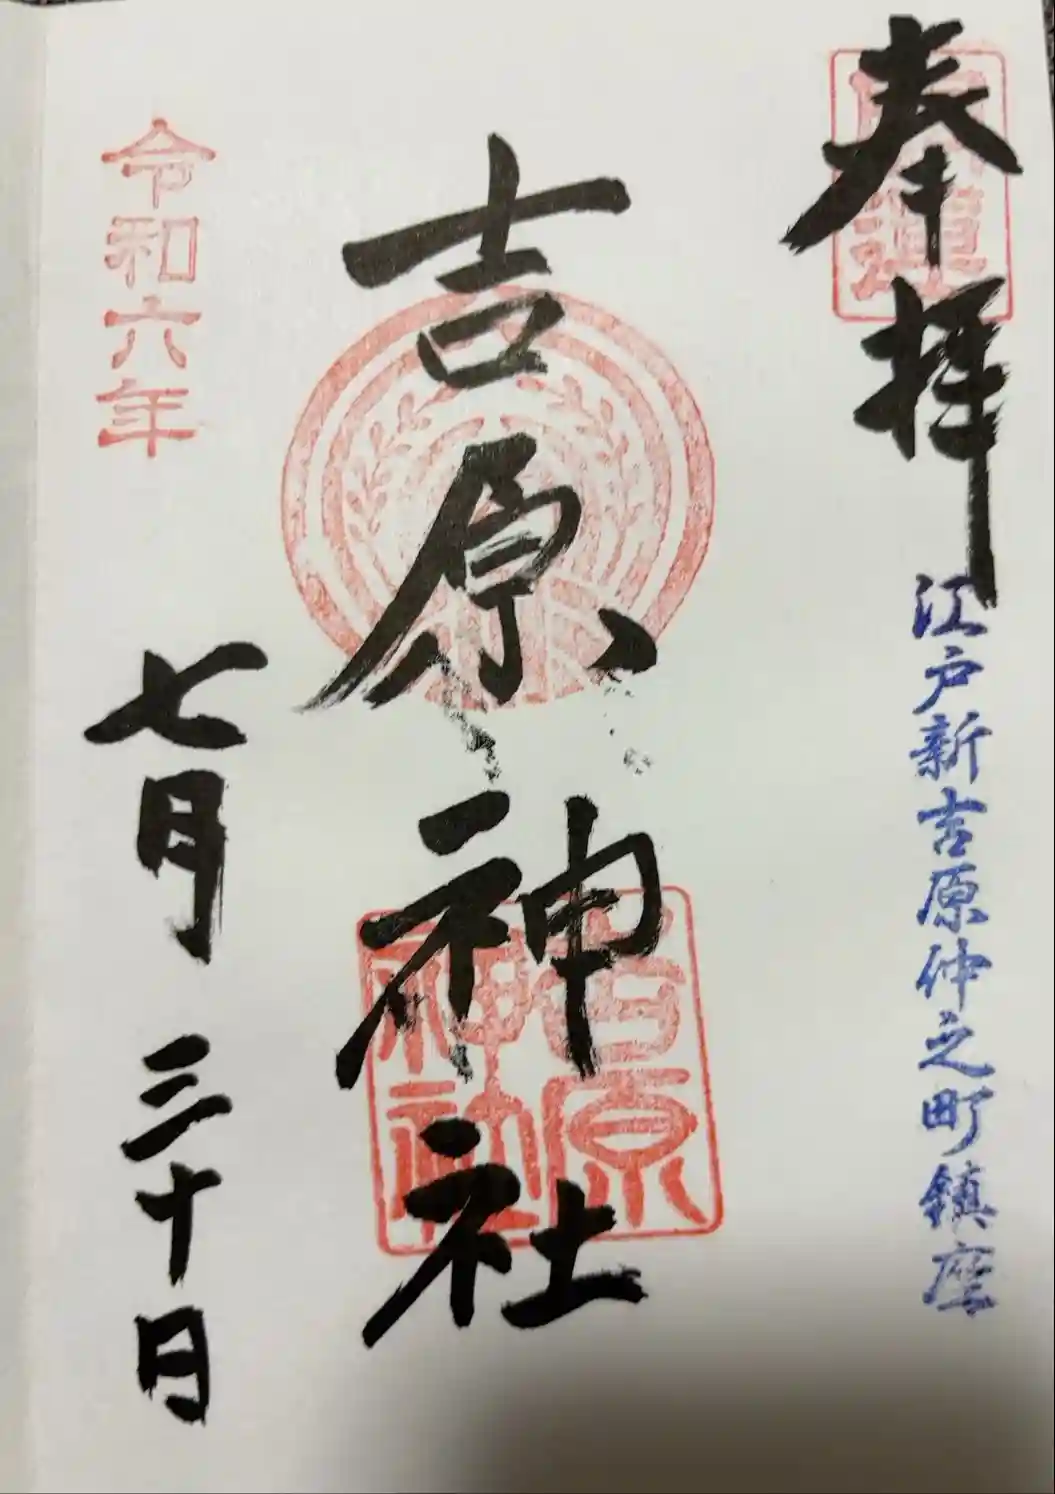 奉拝
開運
江戸新吉原仲之町鎮座
吉原神社
吉原神社
令和六年
七月三十日